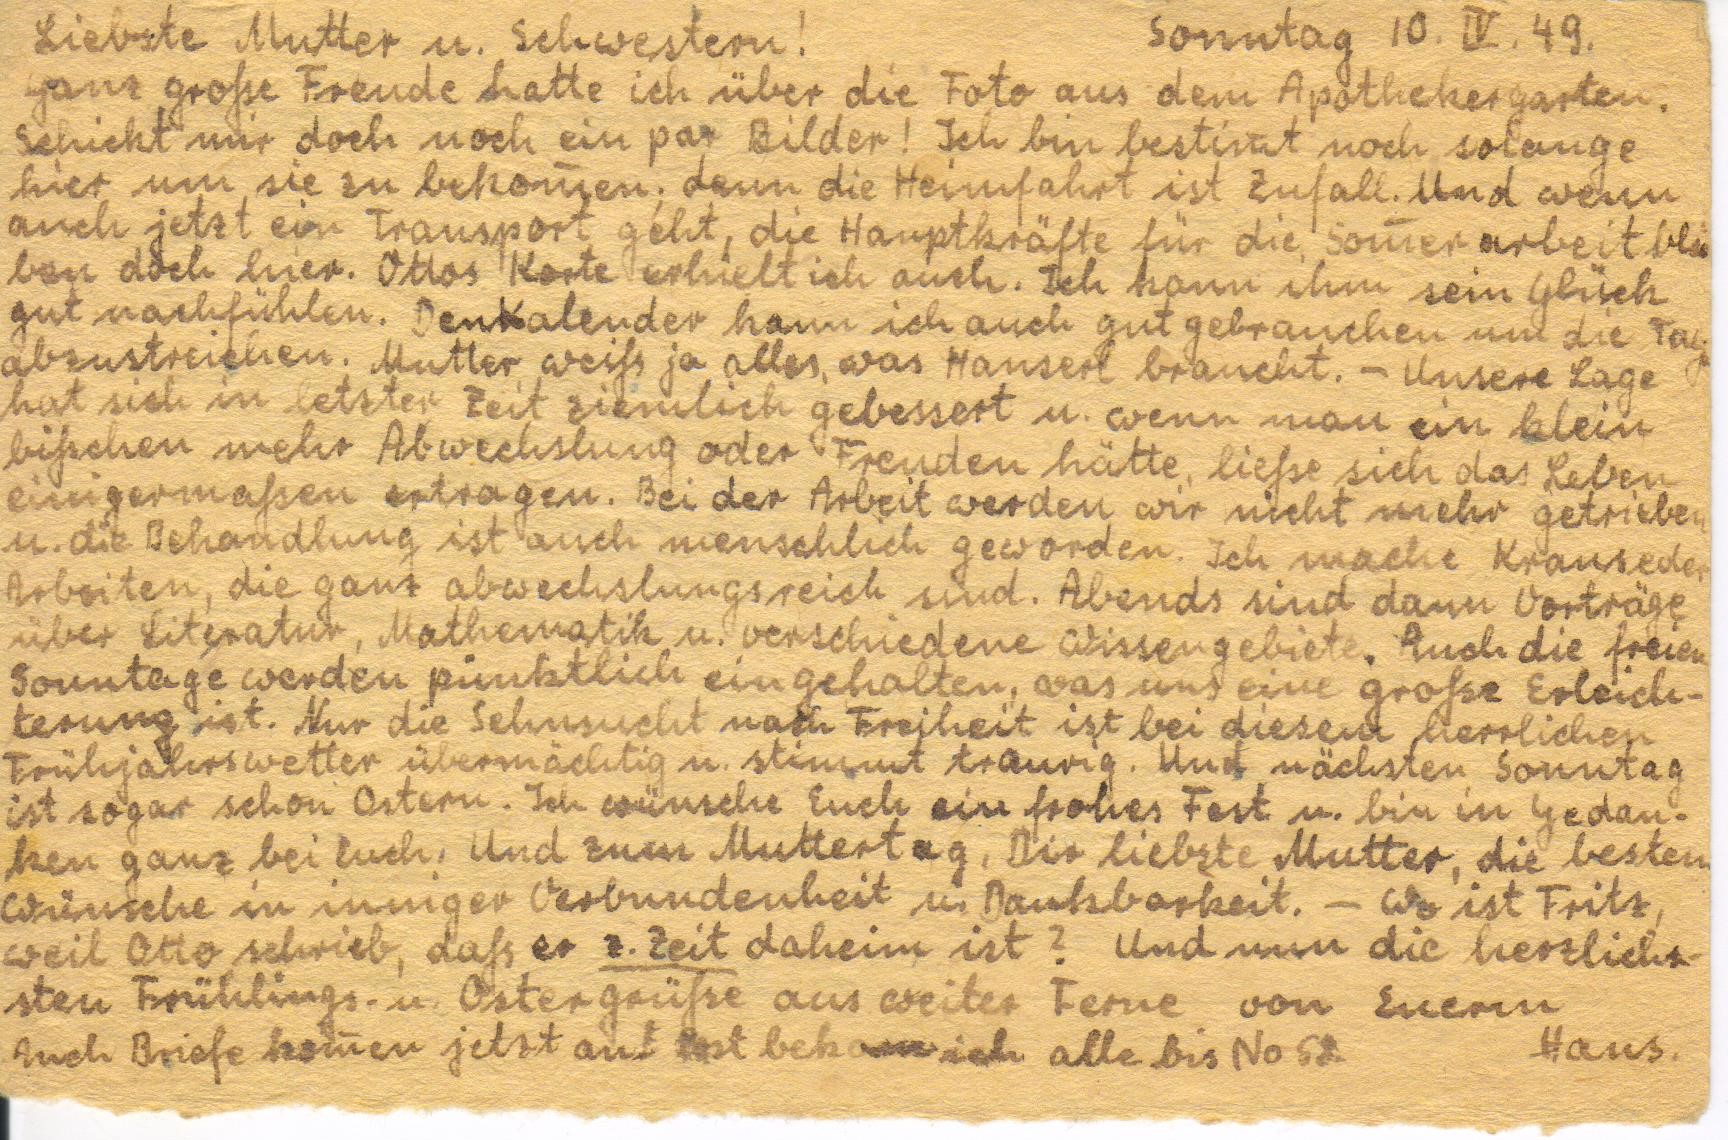 Liebste Mutter u. Schwestern! Sonntag 10. IV. 49.
Ganz große Freude hatte ich über die Foto aus dem Apothekergarten.
Schickt mir doch noch ein par Bilder! Ich bin bestim̅t noch solange
hier um sie zu bekom̅en, denn die Heimfahrt ist Zufall. Und wenn
auch jetzt ein Transport geht, die Hauptkräfte für die Som̅erarbeit blei
ben doch hier. Ottos Karte erhielt ich auch. Ich kann ihm sein Glück
gut nachfühlen. Den Kalender kann ich auch gut gebrauchen um die Tage
abzustreichen. Mutter weiß ja alles, was Hanserl braucht. – Unsere Lage
hat sich in letzter Zeit ziemlich gebessert u. wenn man ein klein
bißchen mehr Abwechslung oder Freuden hätte, ließe sich das Leben
einigermaßen ertragen. Bei der Arbeit werden wir nicht mehr getrieben
u. die Behandlung ist auch menschlich geworden. Ich mache Krauseder
Arbeiten, die ganz abwechslungsreich sind. Abends sind dann Vorträge
über Literatur, Mathematik u. verschiedene Wissengebiete. Auch die freien
Sonntage werden pünktlich eingehalten, was uns eine große Erleich-
terung ist. Nur die Sehnsucht nach Freiheit ist bei diesem herrlichen
Frühjahrswetter übermächtig u. stimmt traurig. Und nächsten Sonntag
ist sogar schon Ostern. Ich wünsche Euch ein frohes Fest u. bin in Gedan-
ken ganz bei Euch. Und zum Muttertag, Dir liebste Mutter, die besten
Wünsche in inniger Verbundenheit u. Dankbarkeit. – Wo ist Fritz,
weil Otto schrieb, daß er z. Zeit daheim ist? Und nun die herzlich-
sten Frühlings- u. Ostergrüße aus weiter Ferne von Euerm
Auch Briefe kom̅en jetzt an bekam ich alle bis No 52 Hans.